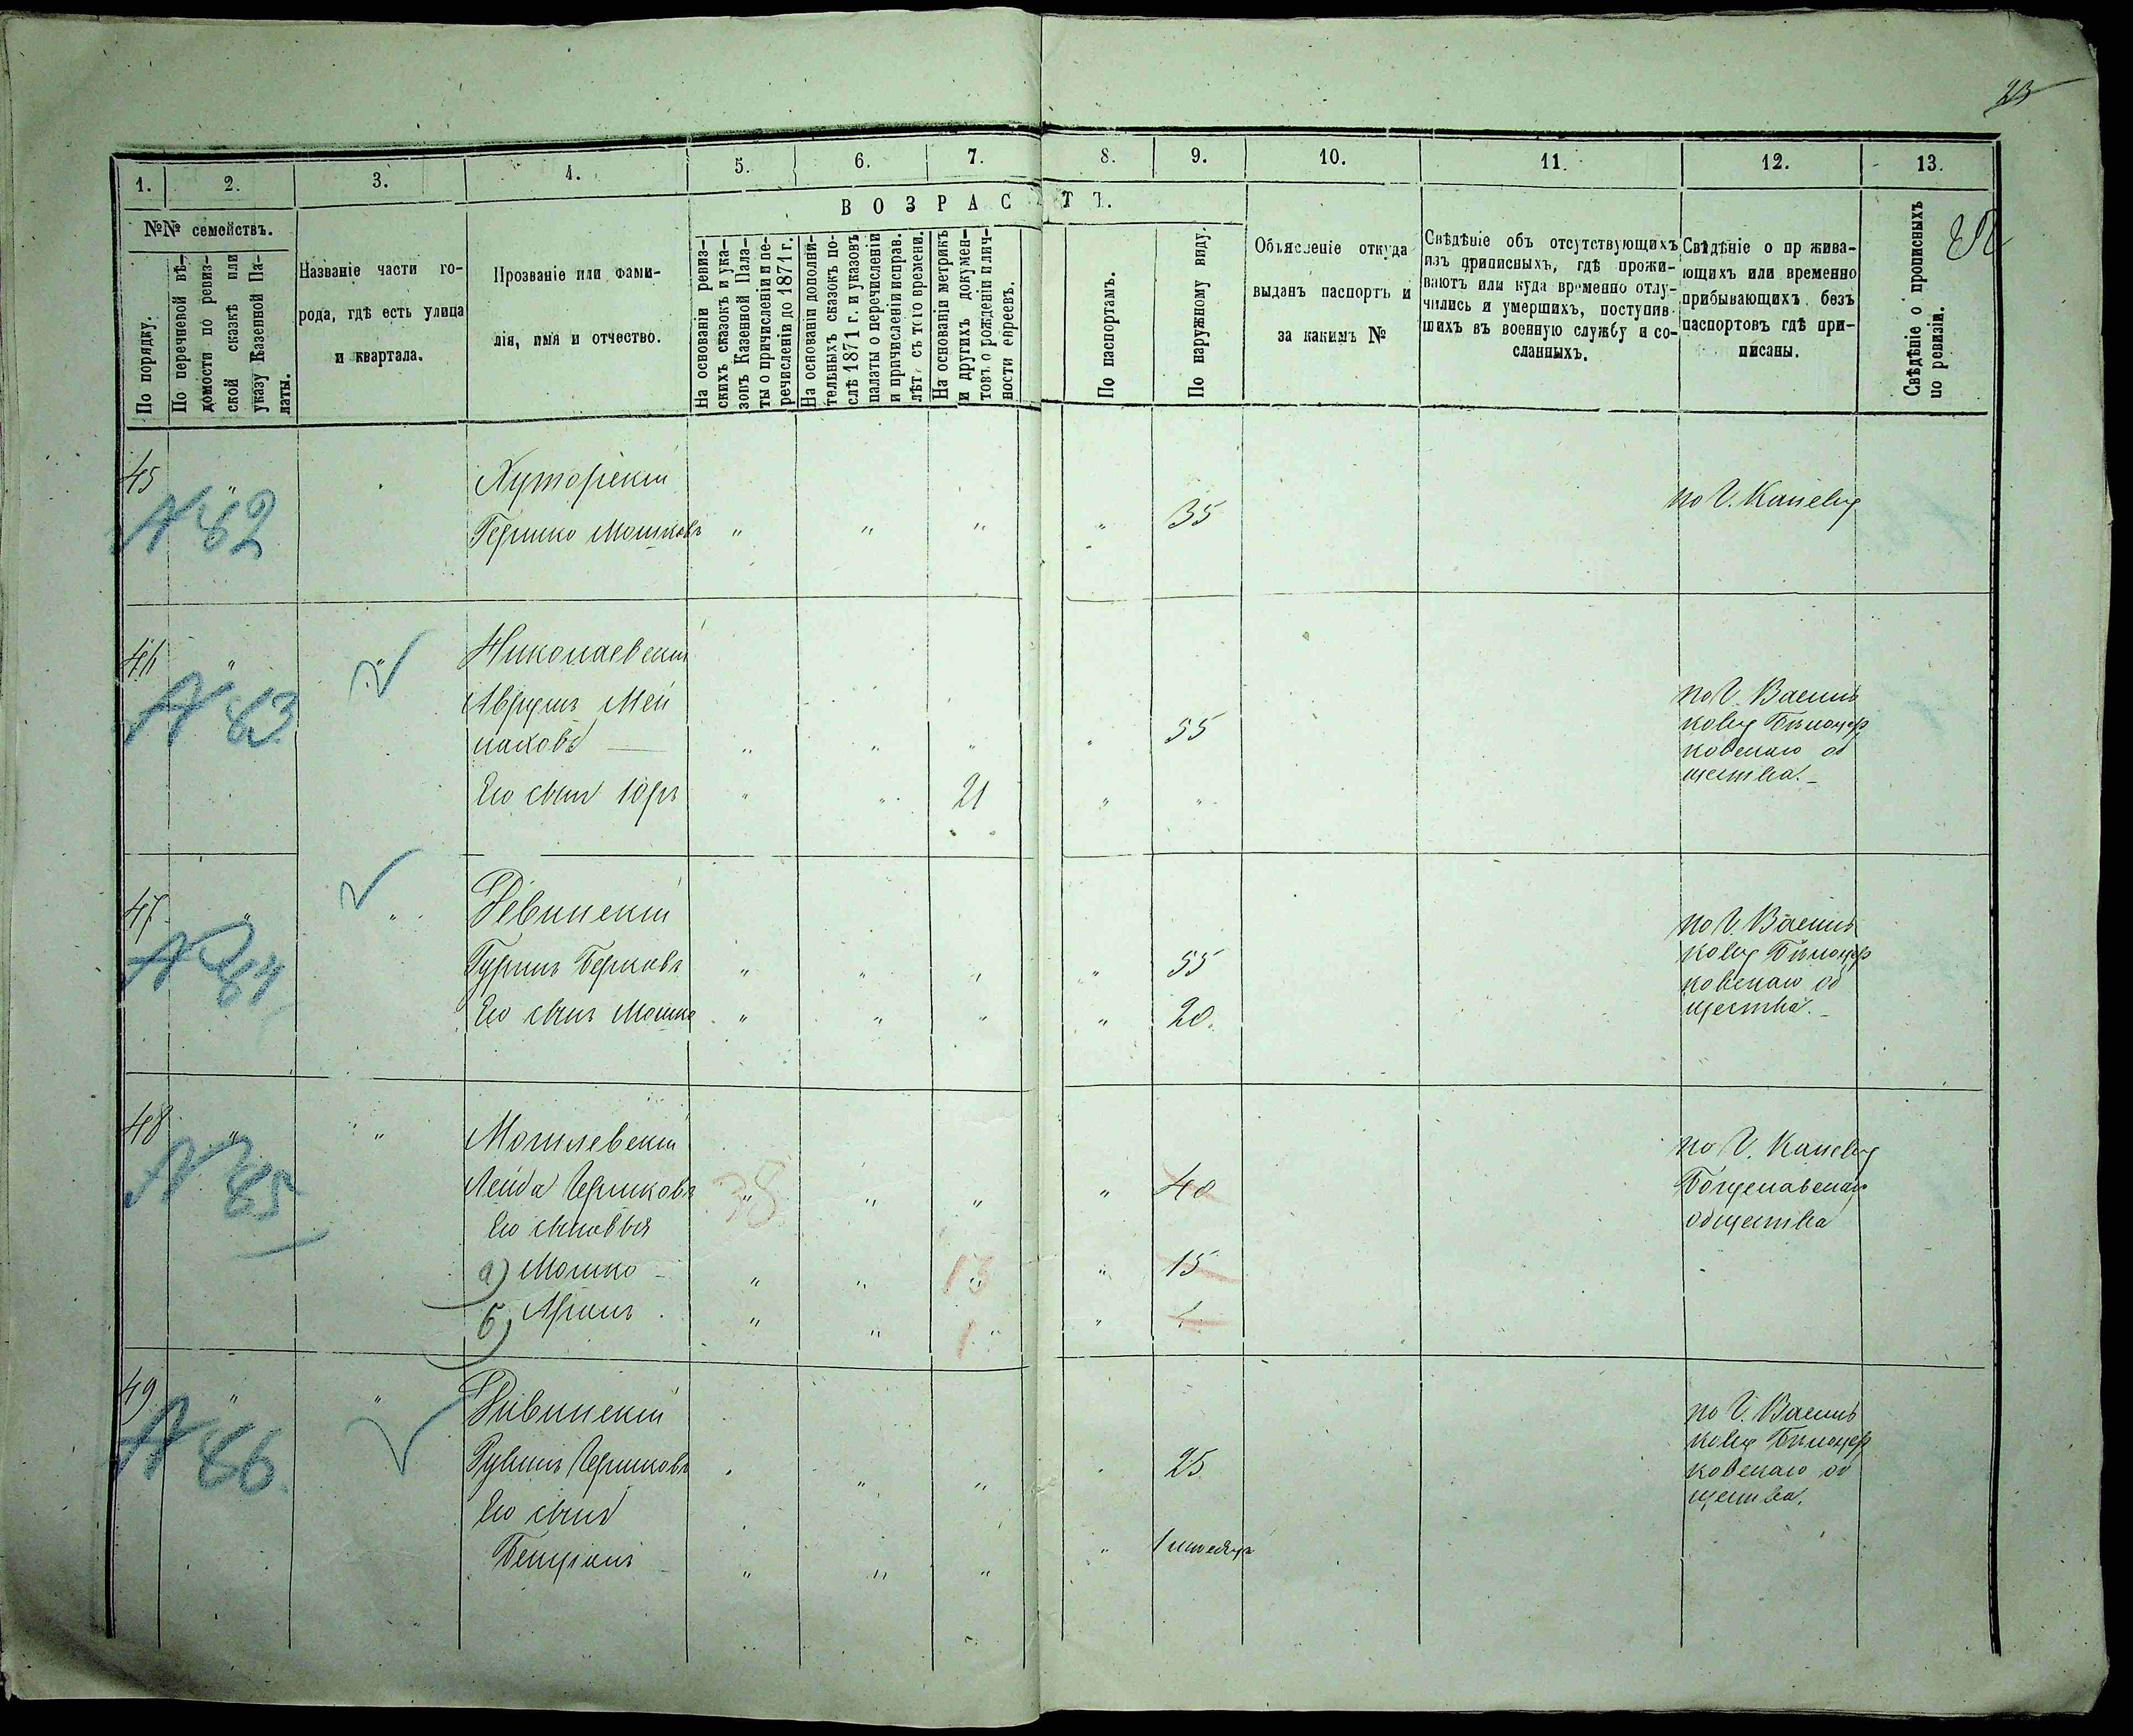 23
1. 2. 3. 4. 5. 6. 7. 8. 9. 10. 11. 12. 13.
№№ семействъ.
По порядку.
По перечневой вѣ-
домости по ревиз-
ской сказкѣ или
указу Казенной Па-
латы.
Названіе части го-
рода, гдѣ есть улица
и квартала.
Прозваніе или фами-
лія, имя и отчество.
ВОЗРАСТЪ.
На основаніи ревиз-
скихъ сказокъ и ука-
зовъ Казенной Пала-
ты о причисленіи и пе-
речисленіи до 1871 г.
На основаніи дополни-
тельныхъ сказокъ по-
слѣ 1871 г. и указовъ
палаты о перечисленіи
и причисленіи исправ.
лѣтъ съ того времени.
На основаніи метрикъ
и другихъ докумен-
товъ о рожденіи и лич-
ности евреевъ.
По паспортамъ.
По наружному виду.
Объясненіе откуда
выданъ паспортъ и
за какимъ №
Свѣдѣніе объ отсутствующихъ
изъ приписныхъ, гдѣ прожи-
ваютъ или куда временно отлу-
чились и умершихъ, поступив-
шихъ въ военную службу и со-
сланныхъ.
Свѣдѣніе о прожива-
ющихъ или временно
прибывающихъ безъ
паспортовъ гдѣ при-
писаны.
Свѣдѣніе о прописныхъ
по ревизіи.
45 " Хуторскій
№ 82
Гершко Мошковъ " " " " 35 по г. Каневу
46 " " Николаевскій
№ 83
Аврумъ Мей
лаховъ — " " " " 55
Его сынъ Юръ " " 21 " "
по г. Василь
кову Бѣлоцер
ковскаго об
щества.
47 " " Ревинскій
№ 84
Гуринъ Берковъ " " " " 55
Его сынъ Мошко " " " " 20.
по г. Василь
кову Бѣлоцер
ковскаго об
щества.
48 " " Могилевскій
№ 85
Лейба Гершковъ 38 " " " " 40
Его сыновья
а) Мошко " " 13 " 15
б) Аронъ " " 1 "
по г. Каневу
Богуславскаго
общества
49 " " Ривинскій
№ 86
Рувинъ Гершковъ " " " " 25
Его сынъ
Бенціонъ " " " " 1 мѣсяцъ
по г. Василь
кову Бѣлоцер
ковскаго об
щества.